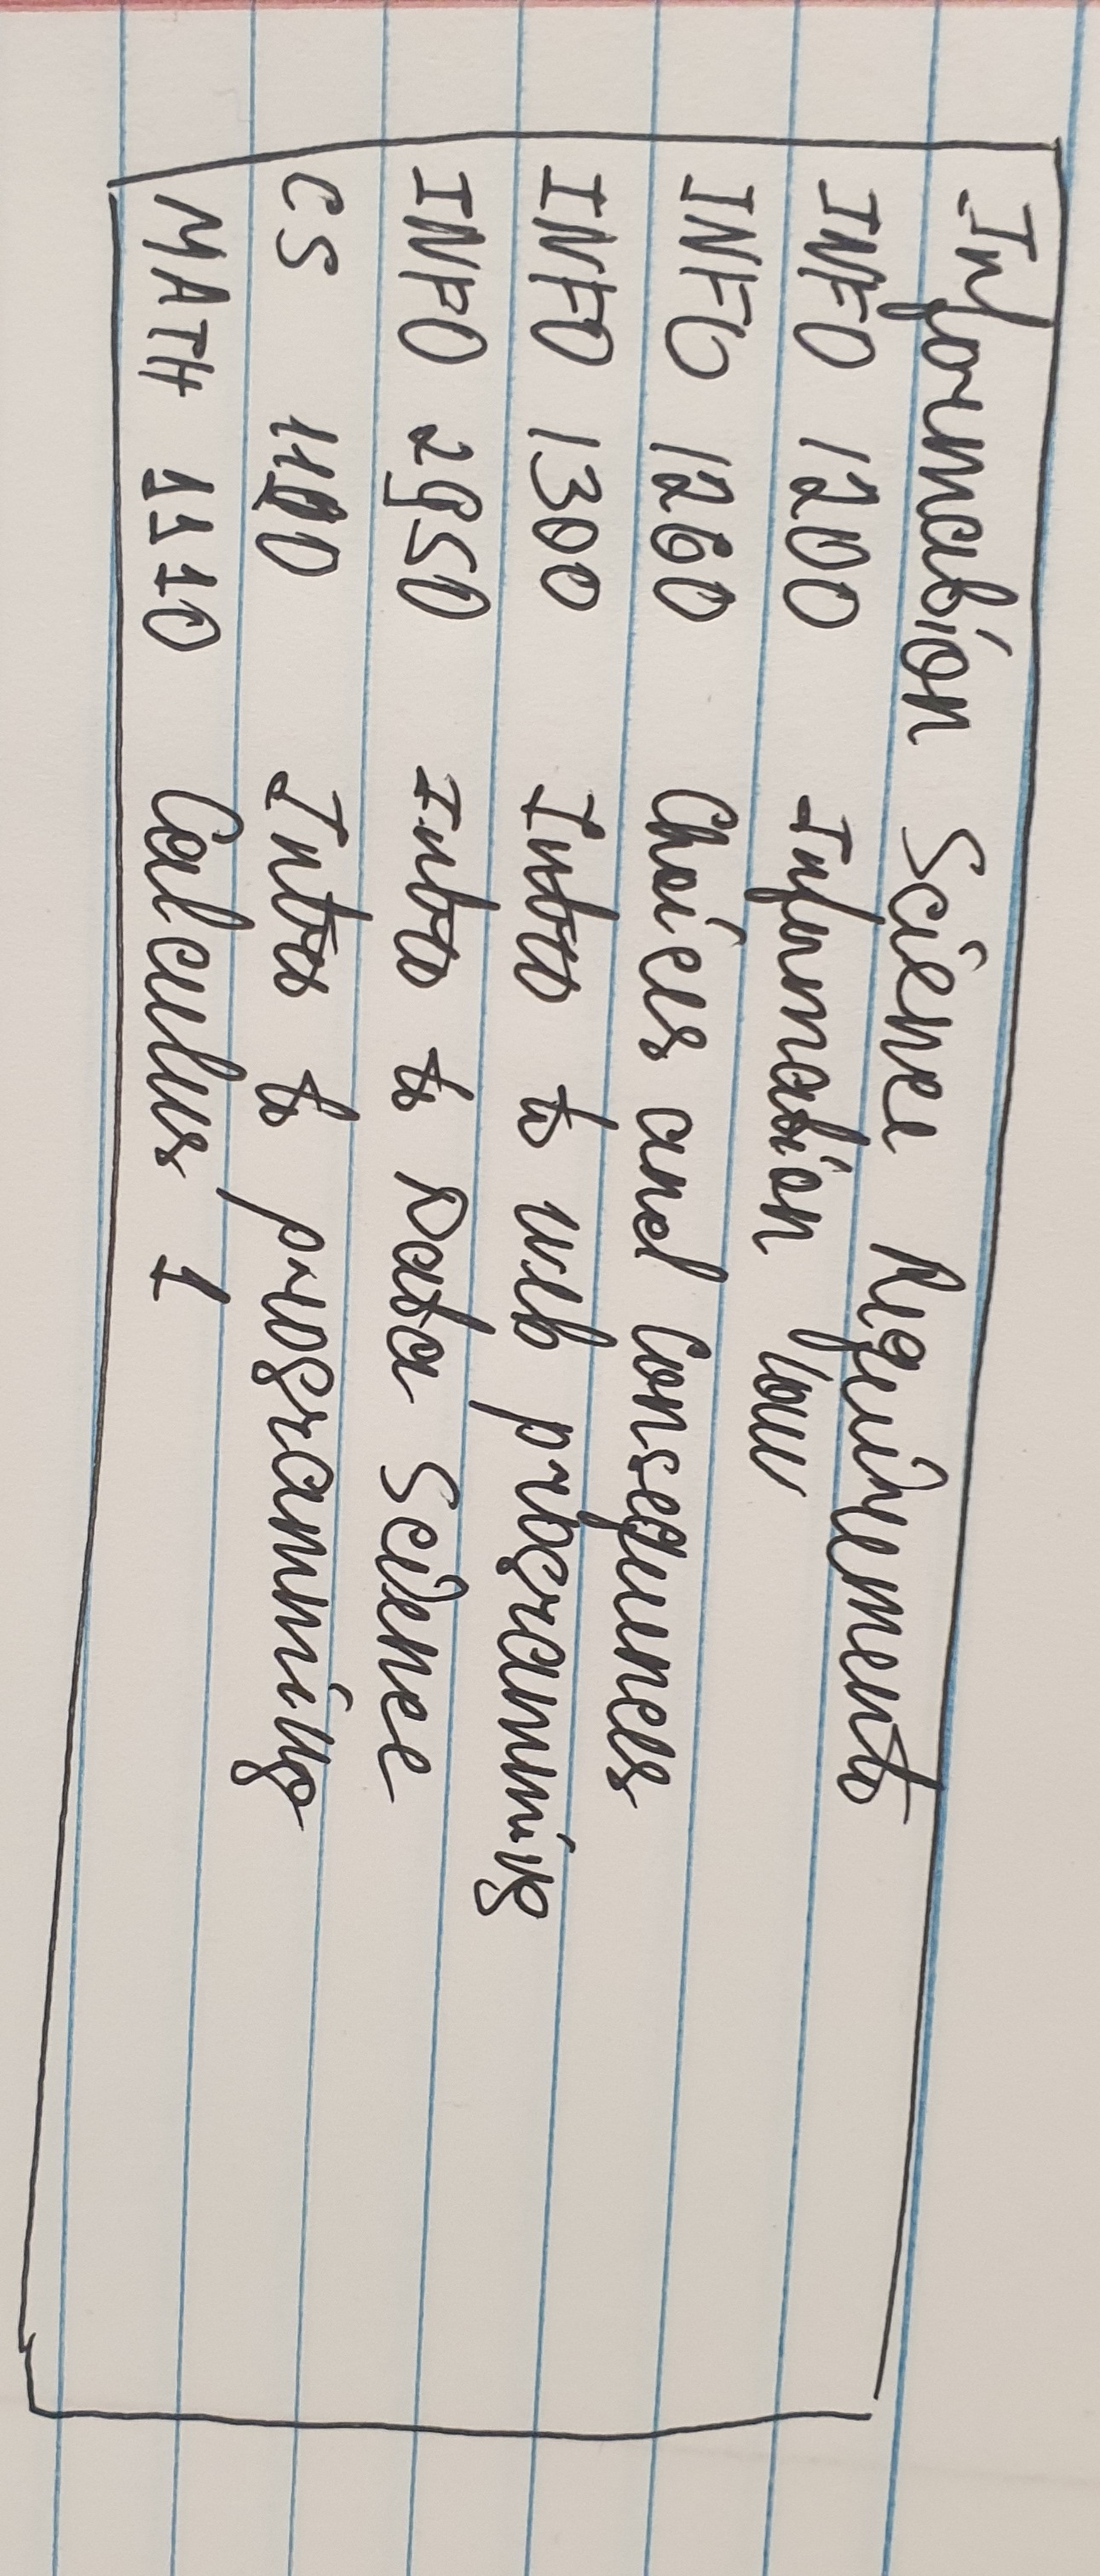 Information Science Requirements
INFO 1200 Information law
INFO 1260 Choices and Consequences
INFO 1300 Intro to web programming
INFO 2950 Intro to Data Science
CS 1110 Intro to programming
MATH 1110 Calculus 1